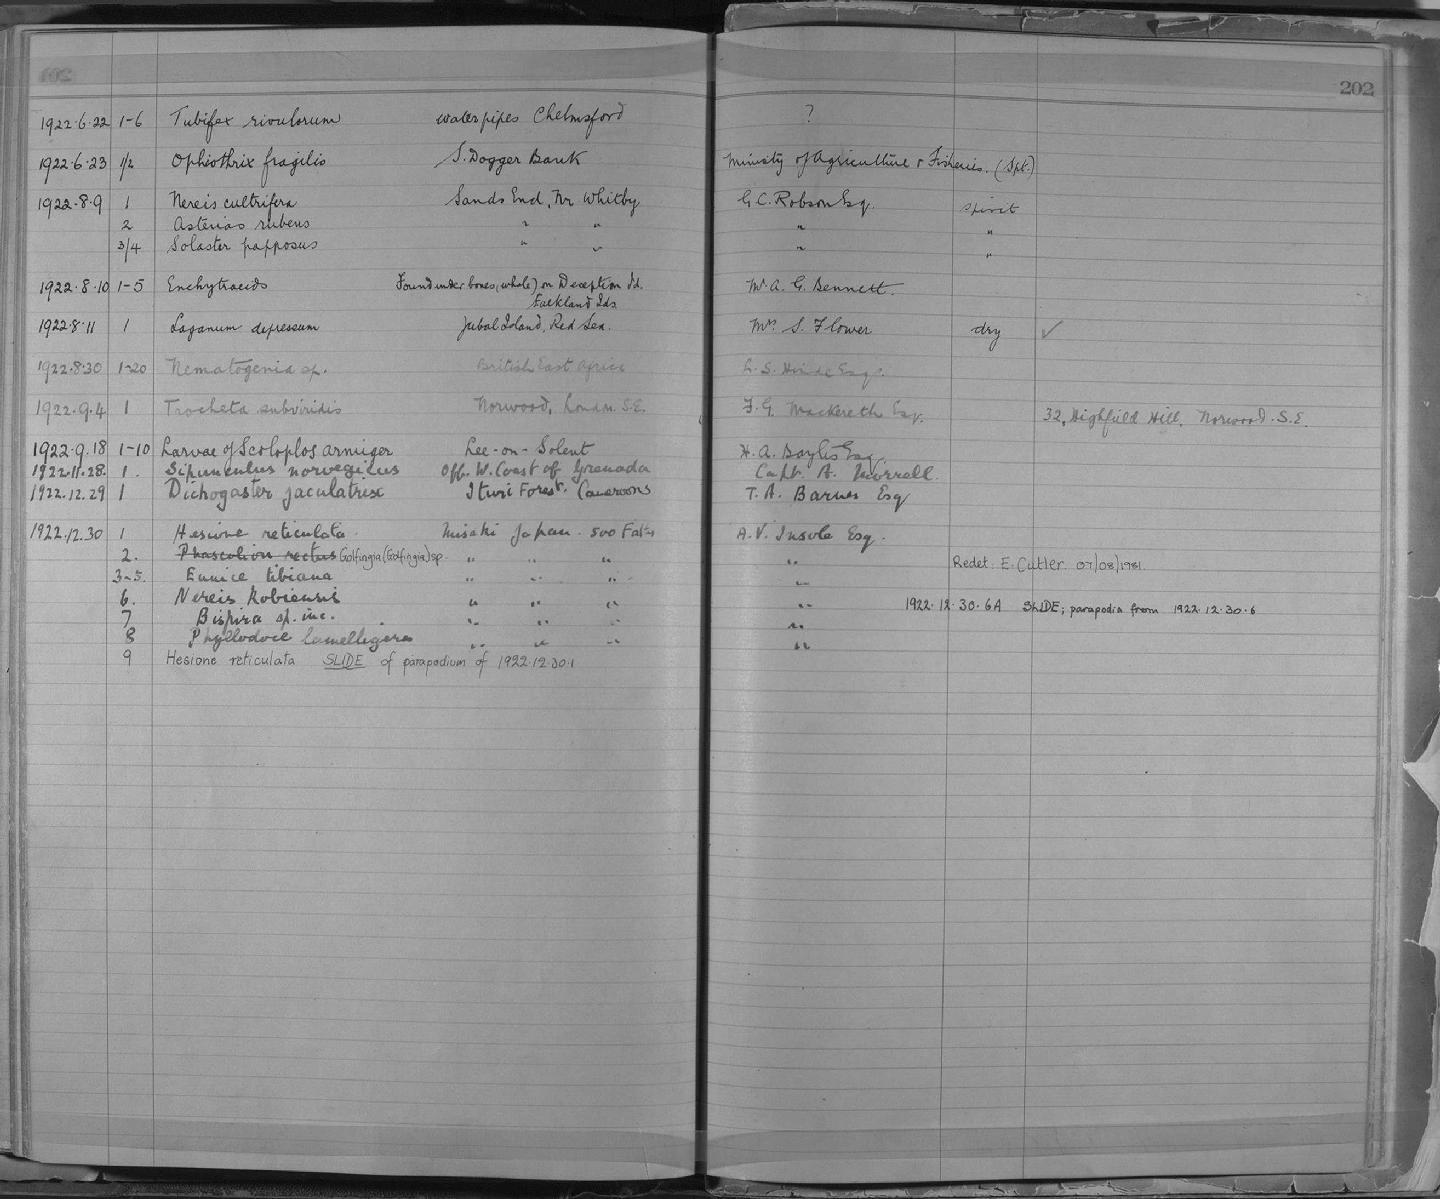 202
1922.6.22 1-6 Tubifex rivulorum water pipes Chelmsford ?
1922.6.23 1/2 Ophiothrix fragilis S. Dogger Bank Ministry of Agriculture & Fisheries. (Spt.)
1922.8.9 1 Nereis cultrifera Sands End, Nr Whitby G.C. Robson Esq. spirit
2 Asterias rubens " " " "
3/4 Solaster papposus " " " "
1922.8.10 1-5 Enchytraeids Found under bones (whale) on Deception Id. Mr A. G. Bennett.
Falkland Ids
1922.8.11 1 Laganum depressum Jubal Island, Red Sea. Mrs S. Flower dry ✓
1922.8.30 1-20 Nematogenia sp. British East Africa L. S. Hinde Esq.
1922.9.4 1 Trocheta subviridis Norwood, London S.E. F. G. Mackereth Esq. 32, Highfield Hill, Norwood. S.E.
1922.9.18 1-10 Larvae of Scoloplos armiger Lee-on-Solent H. A. Baylis Esq.
1922.11.28. 1. Sipunculus norvegicus Off. W. Coast of Grenada Capt. A.
1922.12.29 1 Dichogaster jaculatrix Ituri Forest. Cameroons T. A. Barnes Esq
1922.12.30 1 Hesione reticulata. Misaki Japan. 500 Faths A. V. Insole Esq.
2. Phascolion rectus Golfingia (Golfingia) sp. " " " " Redet. E. Cutler 07/08/1981.
3-5. Eunice tibiana " " " "
6. Nereis kobiensis " " " " 1922.12.30.6A SLIDE; parapodia from 1922.12.30.6
7 Bispira sp. inc. " " " "
8 Phyllodoce lamelligera " " " "
9 Hesione reticulata SLIDE of parapodium of 1922.12.30.1